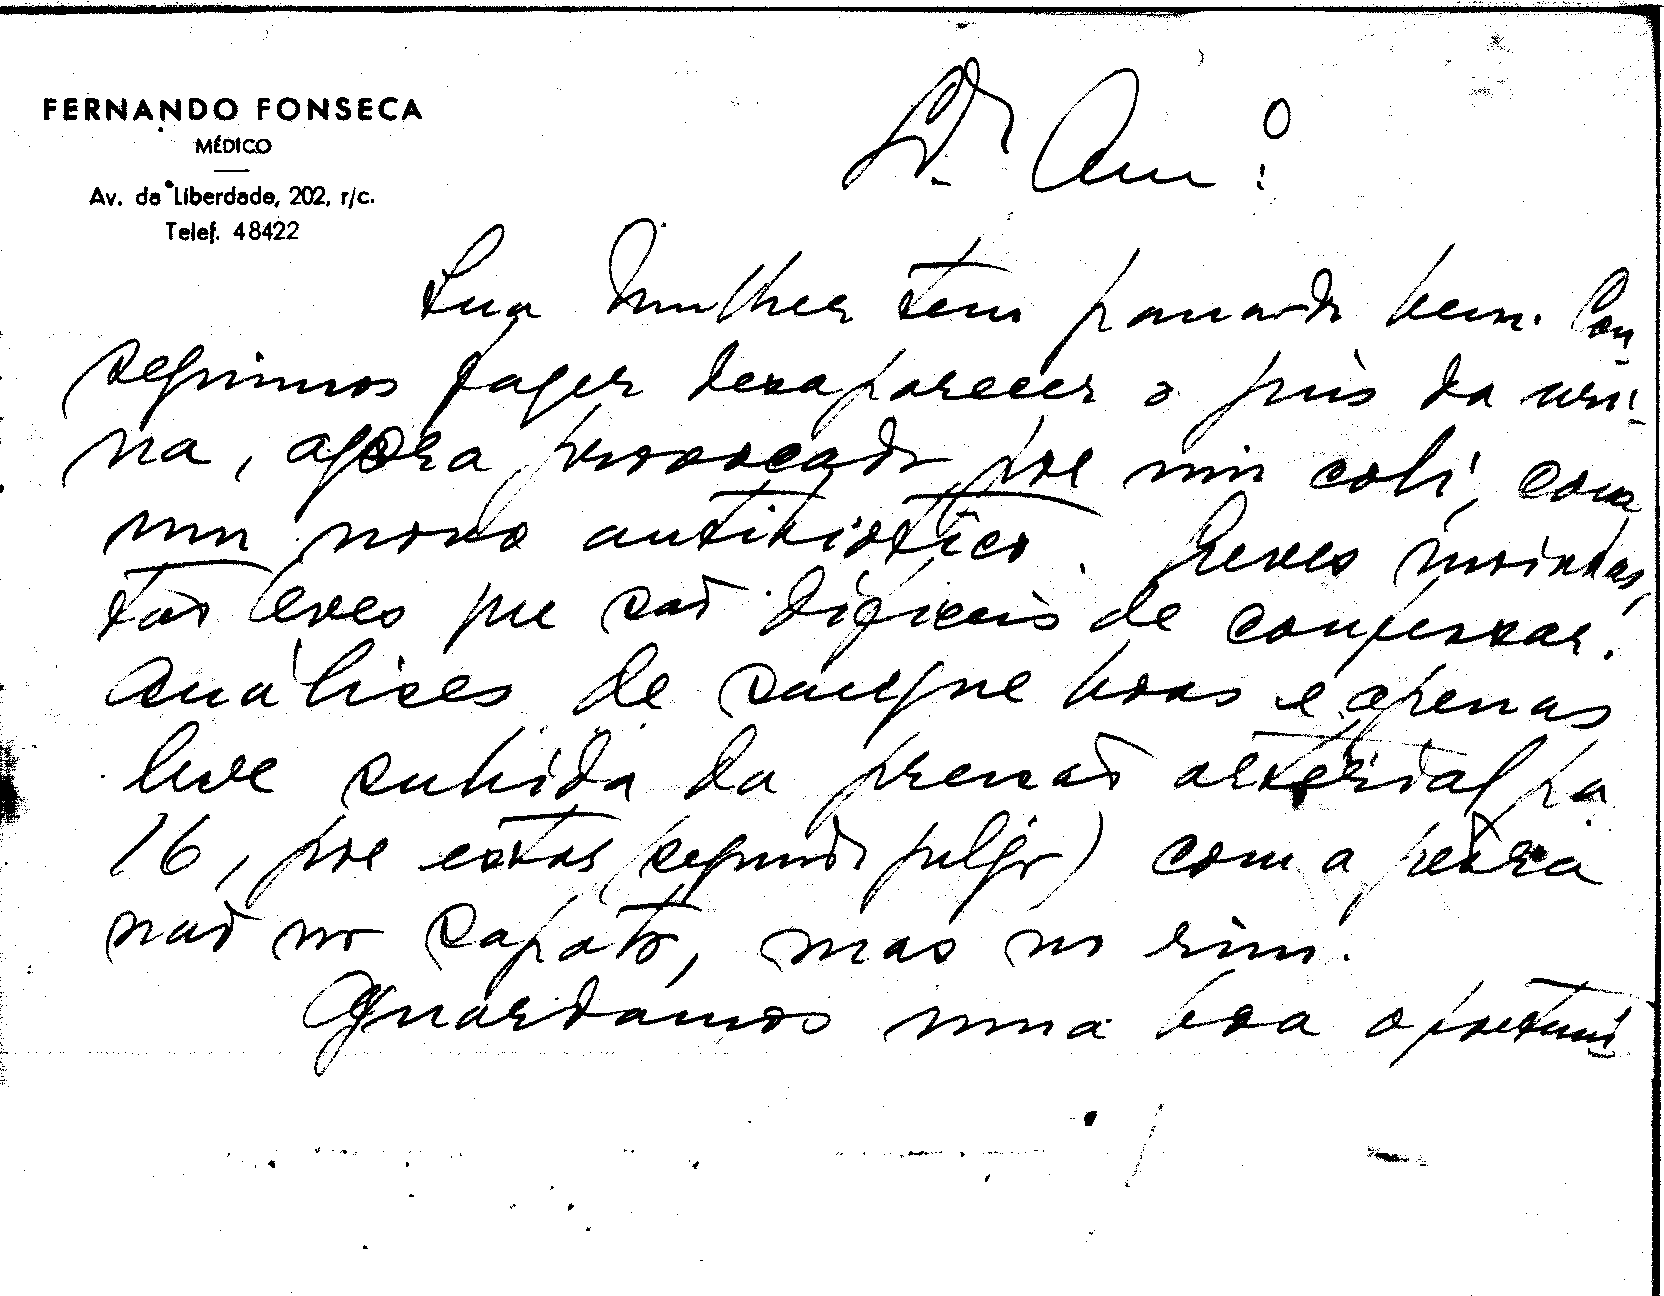 FERNANDO FONSECA
MÉDICO
Av. da Liberdade, 202, r/c.
Telef. 48422
Dr. Am.º
Sua Mulher tem passado bem. Con-
seguimos fazer desaparecer o pús da uri-
na, agora provocado por um coli, com
um novo antibiótico. Leves moinhas,
tão leves que são difíceis de confessar.
Análises de sangue boas e apenas
leve subida da pressão arterial pa
16, por estar (segundo julgo) com a pedra
não no sapato, mas no rim.
Aguardamos uma boa oportuni-